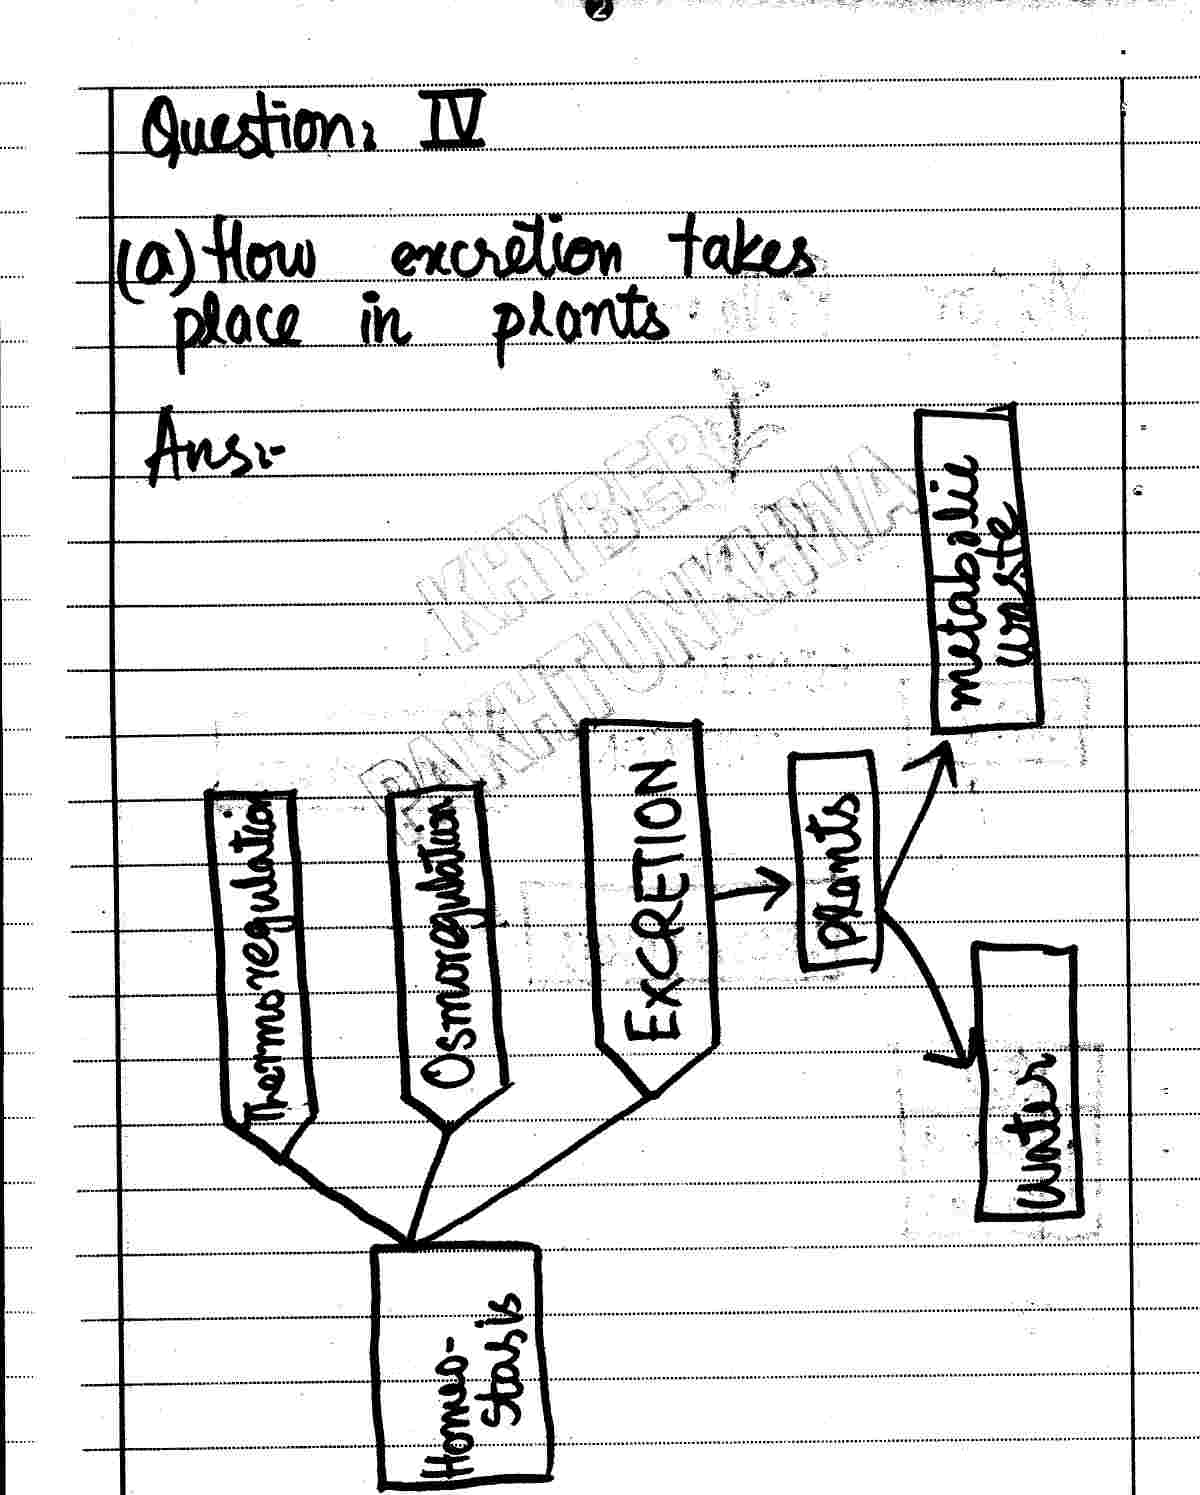 2
Question: IV
(a) How excretion takes
place in plants
Ans:-
KHYBER
PAKHTUNKHWA
metabalic
waste
Thermoregulation
Osmoregulation
EXCRETION
plants
water
Homeo-
stasis